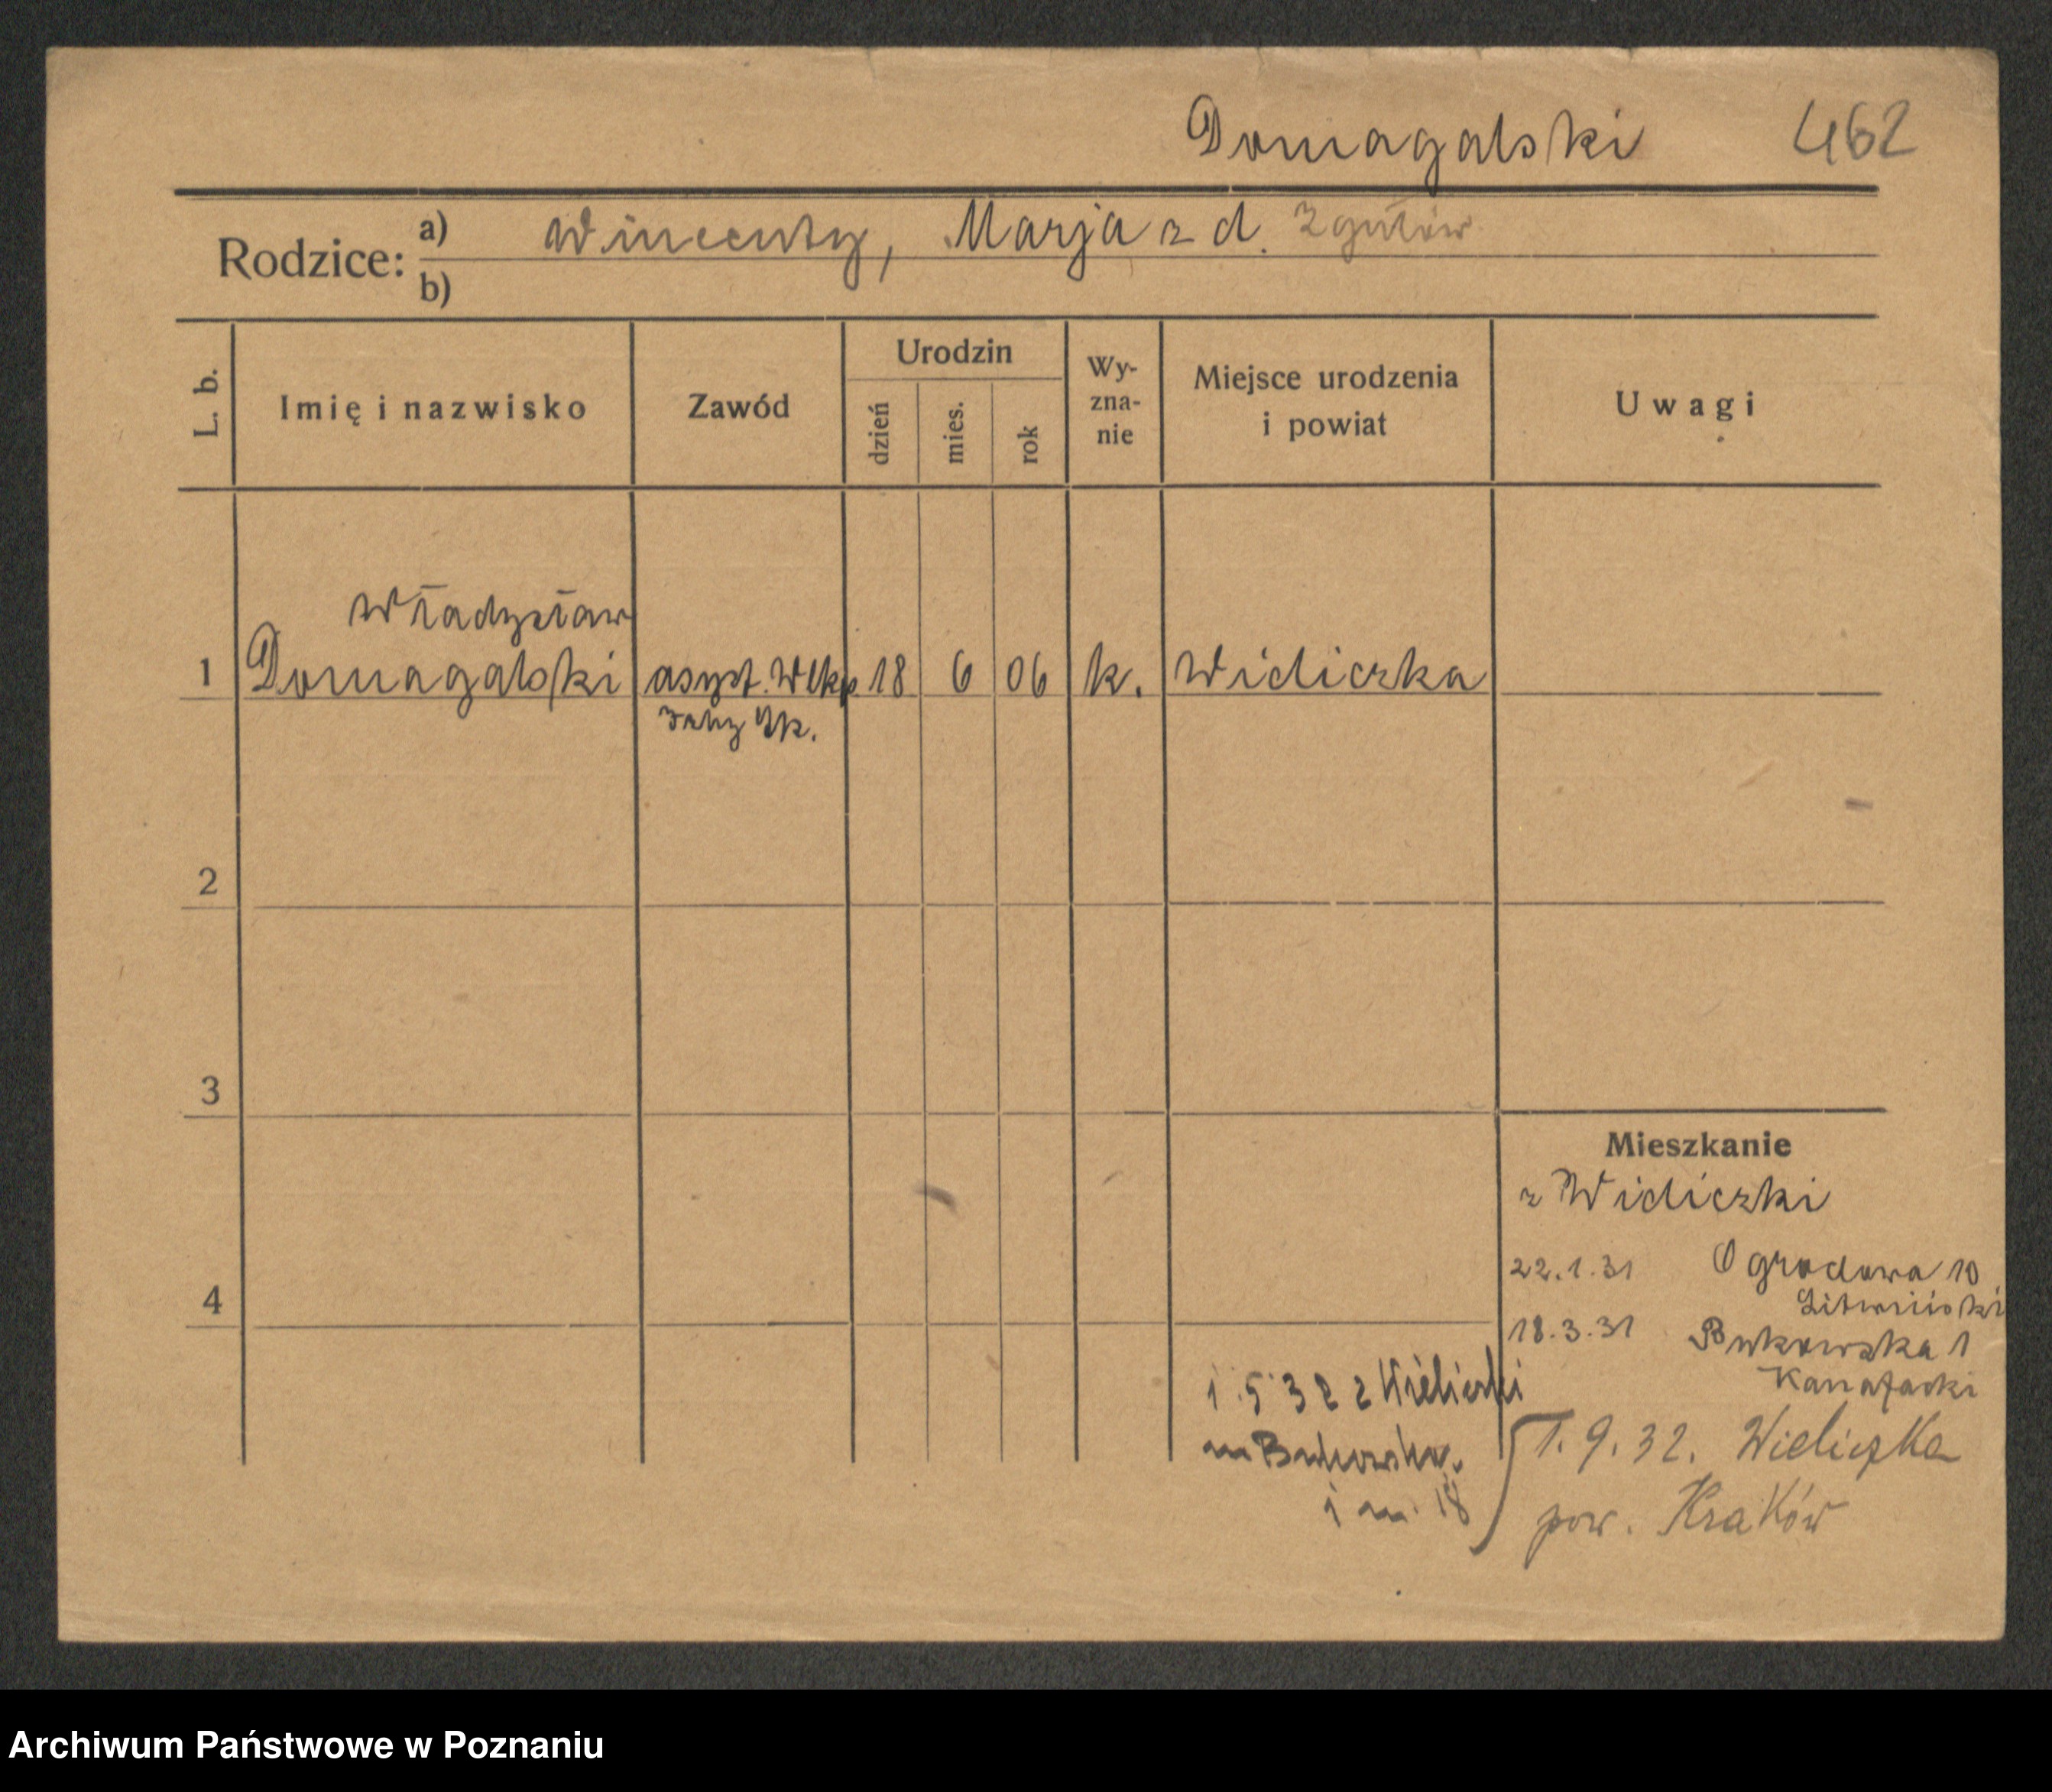 Domagalski 462
Rodzice: a) Wincenty, Marja z d. Zgutów
b)
L. b. Imię i nazwisko Zawód Urodzin dzień mies. rok Wy-zna-nie Miejsce urodzenia i powiat Uwagi
Władysław
1 Domagalski asyst. Wlkp 18 6 06 k. Wieliczka
Izby
2
3
Mieszkanie
z Wieliczki
22.1.31 Ogrodowa 10
4
18.3.31 Bukowska 1
1.5.32 z Wieliczki
Bukowska
1 m. 18
1.9.32. Wieliczka
pow. Kraków
Archiwum Państwowe w Poznaniu